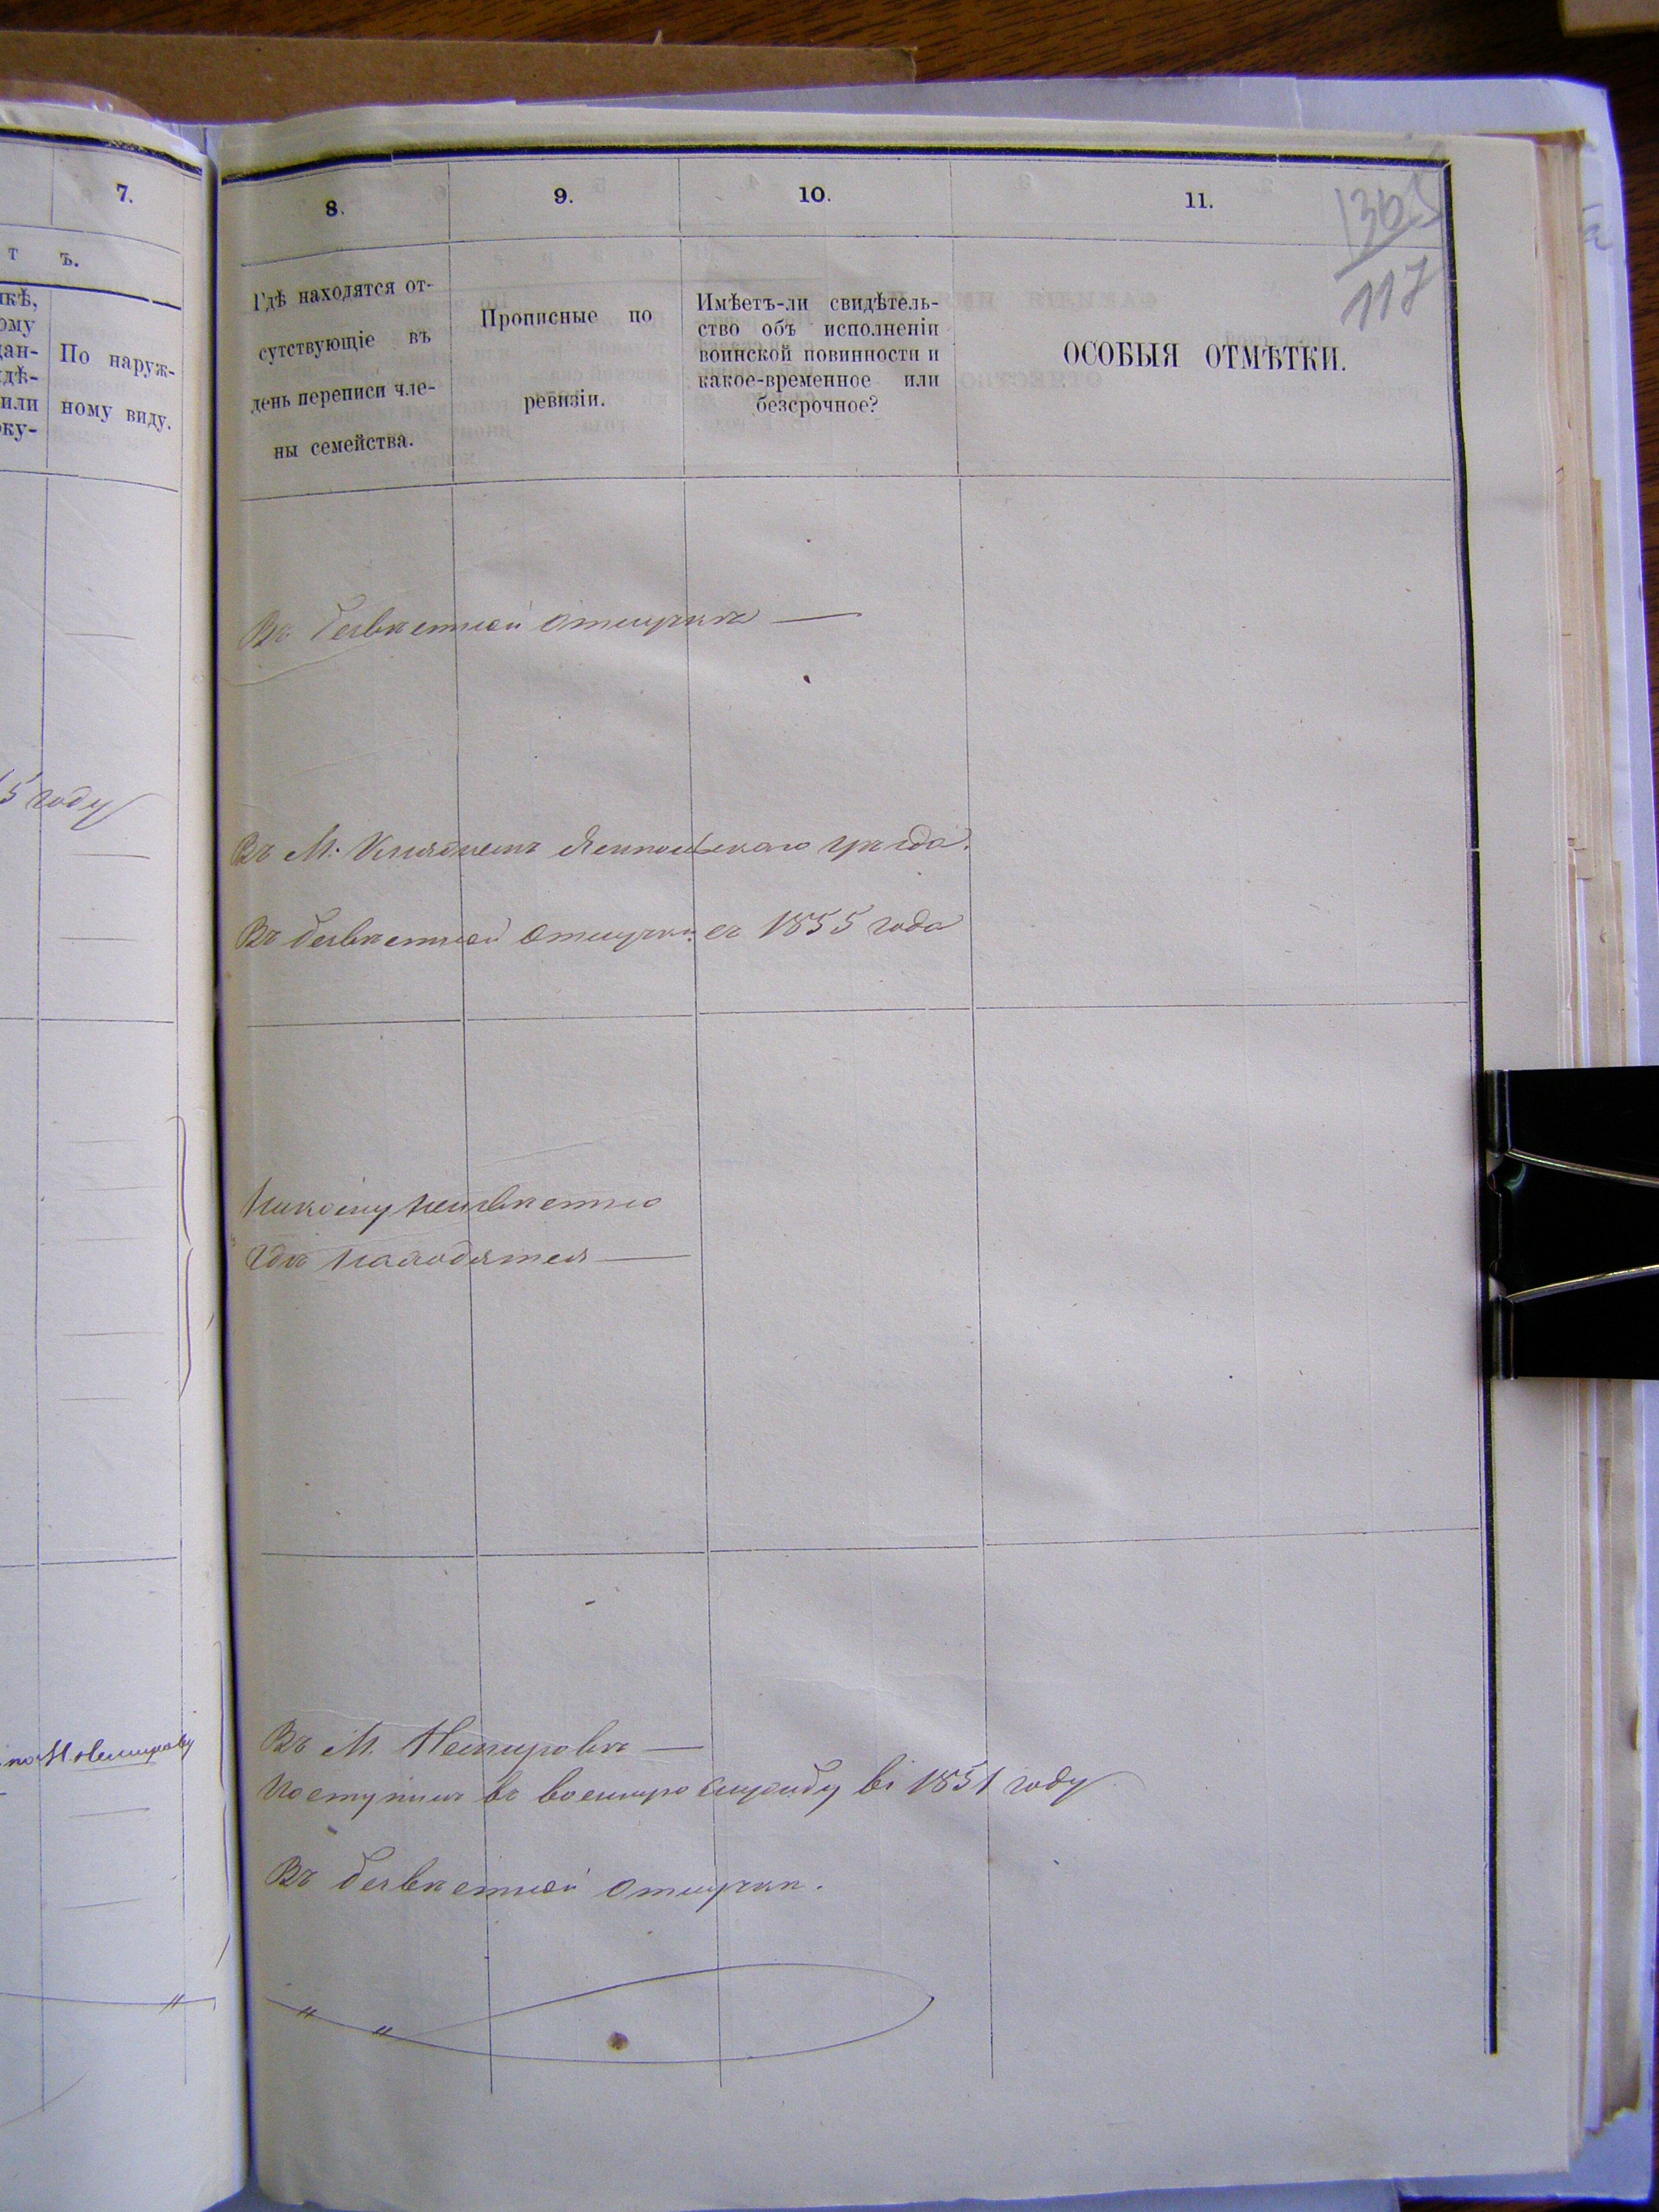 7.
т ъ.
По наруж-
ному виду.
5 году
8.
9.
10.
11.
117
Гдѣ находятся от-
сутствующіе въ
день переписи чле-
ны семейства.
Прописные по
ревизіи.
Имѣетъ-ли свидѣтель-
ство объ исполненіи
воинской повинности и
какое-временное или
безсрочное?
ОСОБЫЯ ОТМѢТКИ.
Въ безвѣстной отлучкѣ —
Въ М. Ямпольскаго уѣзда.
Въ безвѣстной отлучкѣ съ 1855 года
Никому неизвѣстно
гдѣ находятся —
Въ М. Немировѣ —
Поступилъ въ военную службу въ 1851 году
Въ безвѣстной отлучкѣ.